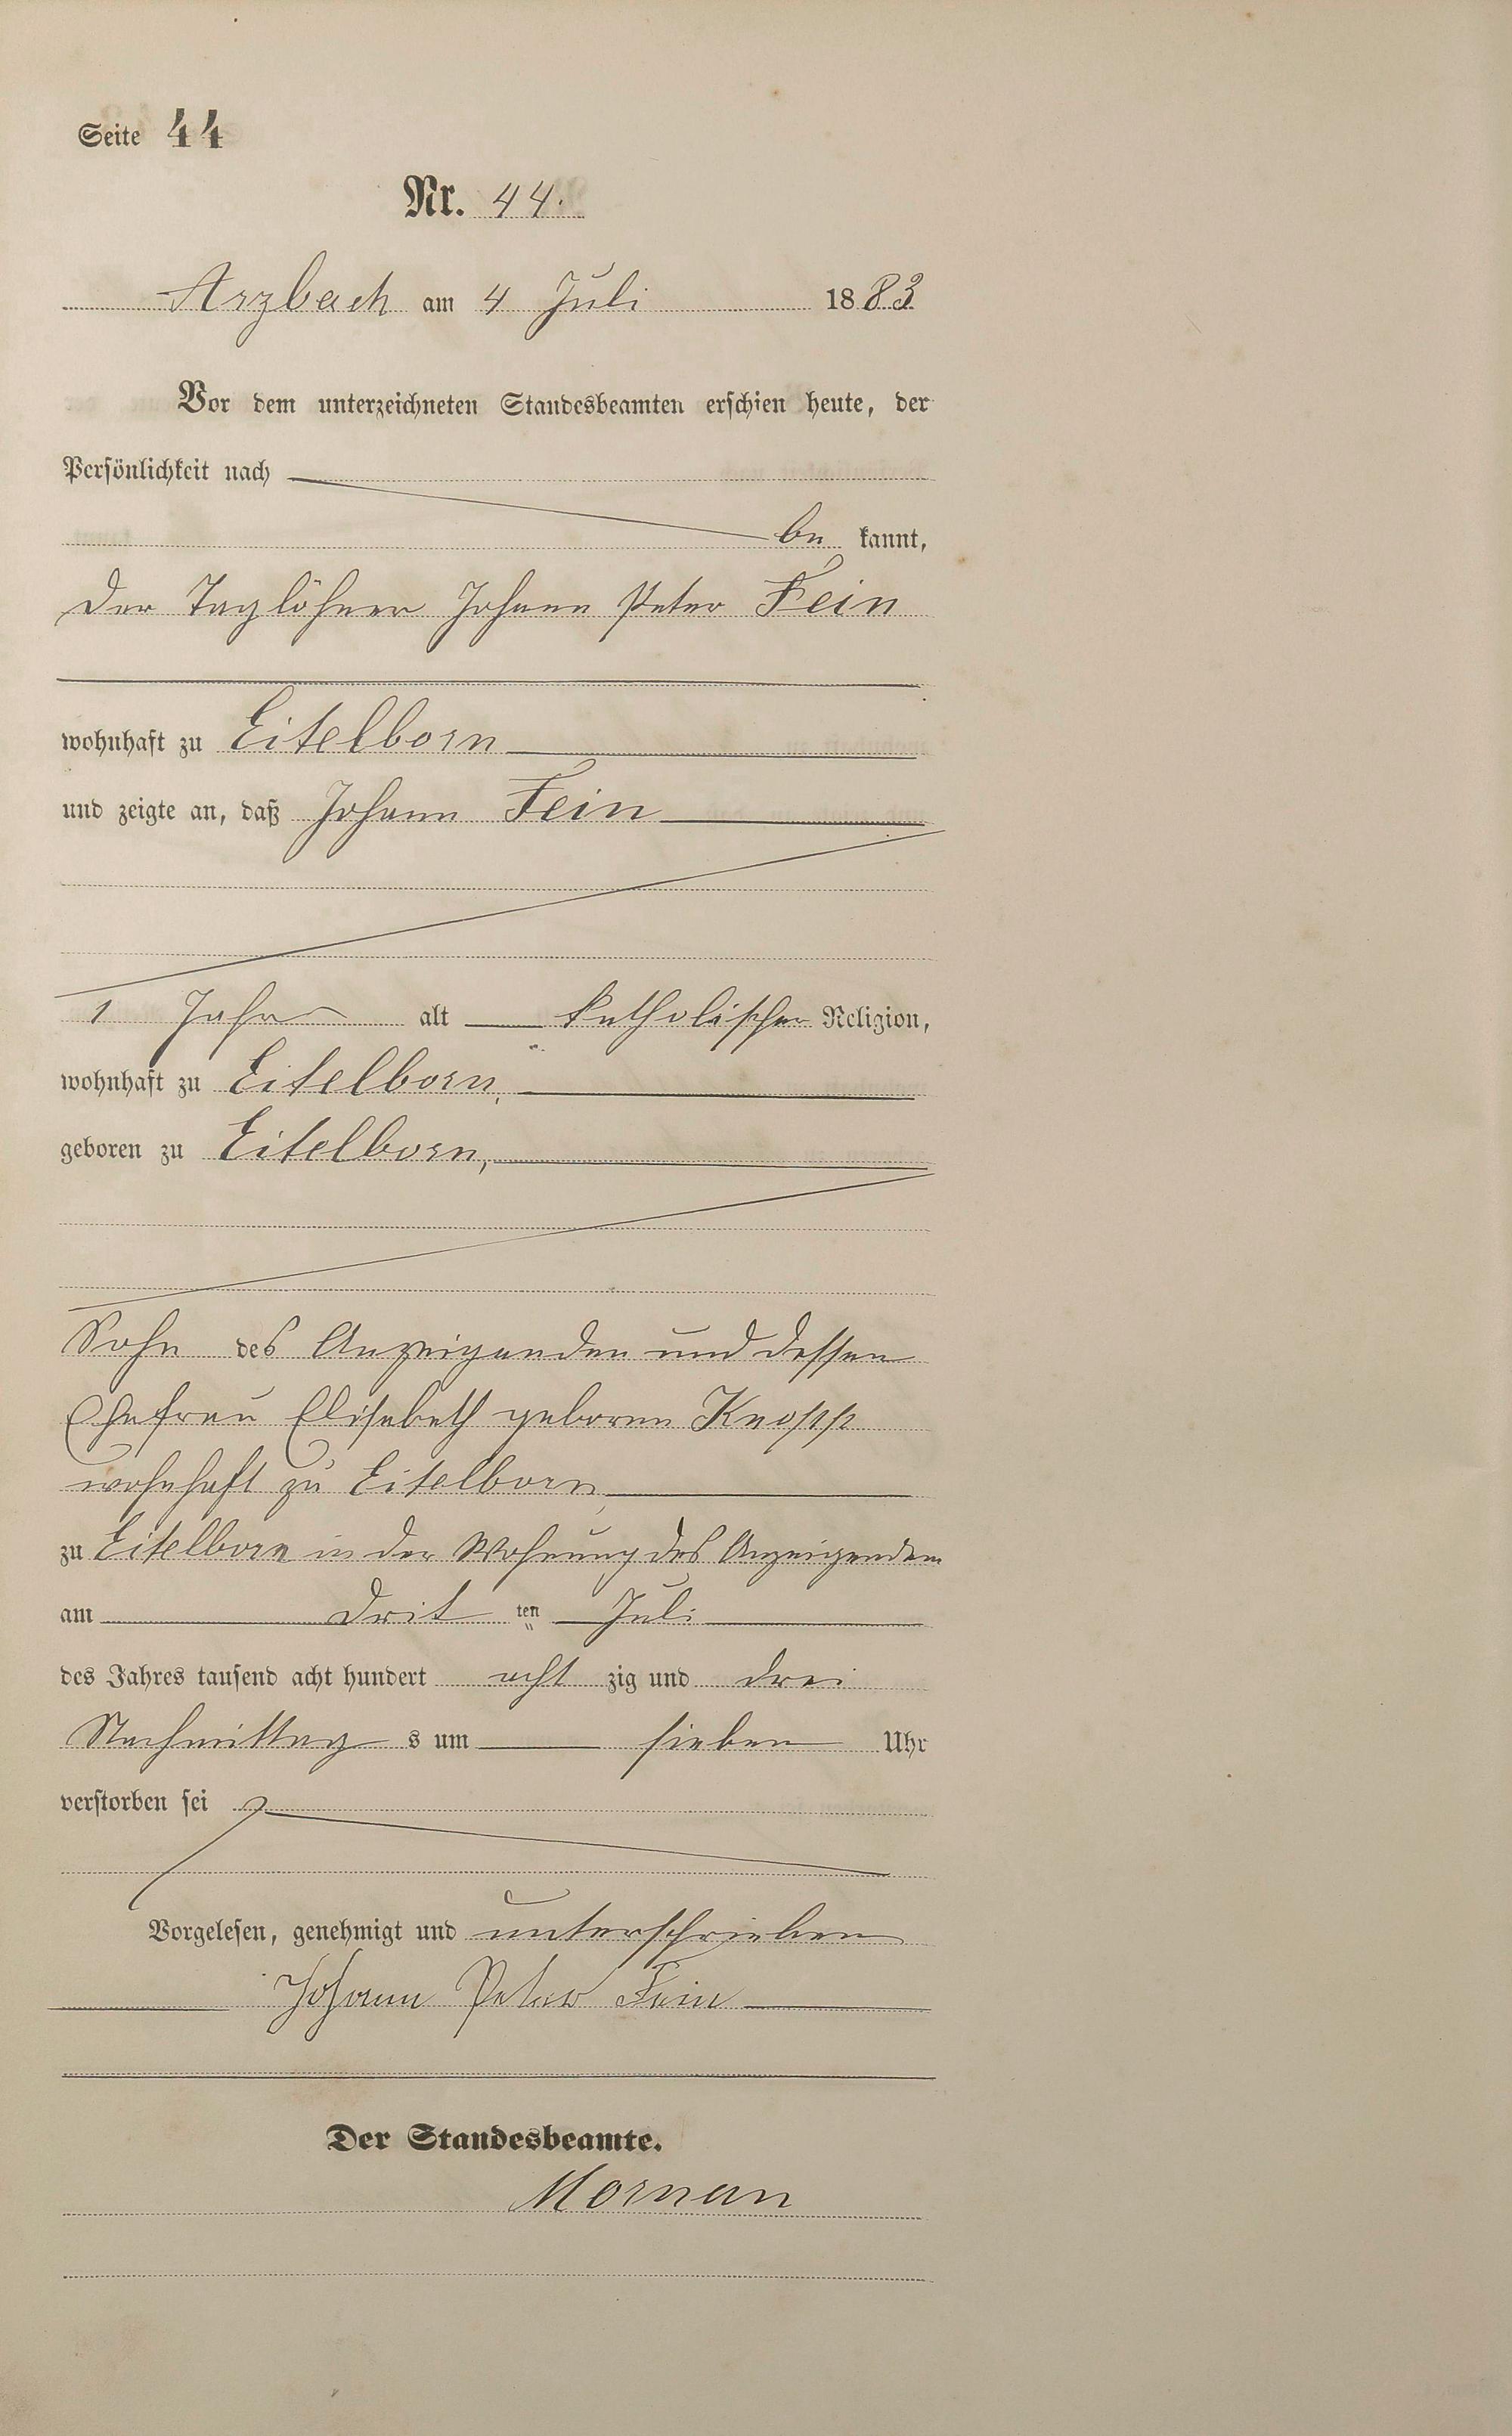 Seite 44
Nr. 44.
Arzbach am 4 Juli 1883
Vor dem unterzeichneten Standesbeamten erschien heute, der
Persönlichkeit nach
be kannt,
der Taglöhner Johann Peter Fein
wohnhaft zu Eitelborn
und zeigte an, daß Johann Fein
1 Jahr alt katholischer Religion,
wohnhaft zu Eitelborn,
geboren zu Eitelborn,
Sohn des Anzeigenden und dessen
Ehefrau Elisabeth geborne Knopp
wohnhaft zu Eitelborn,
zu Eitelborn in der Wohnung des Anzeigenden
am drit ten Juli
des Jahres tausend acht hundert acht zig und drei
Nachmittag s um sieben Uhr
verstorben sei
Vorgelesen, genehmigt und unterschrieben
Johann Peter Fein
Der Standesbeamte.